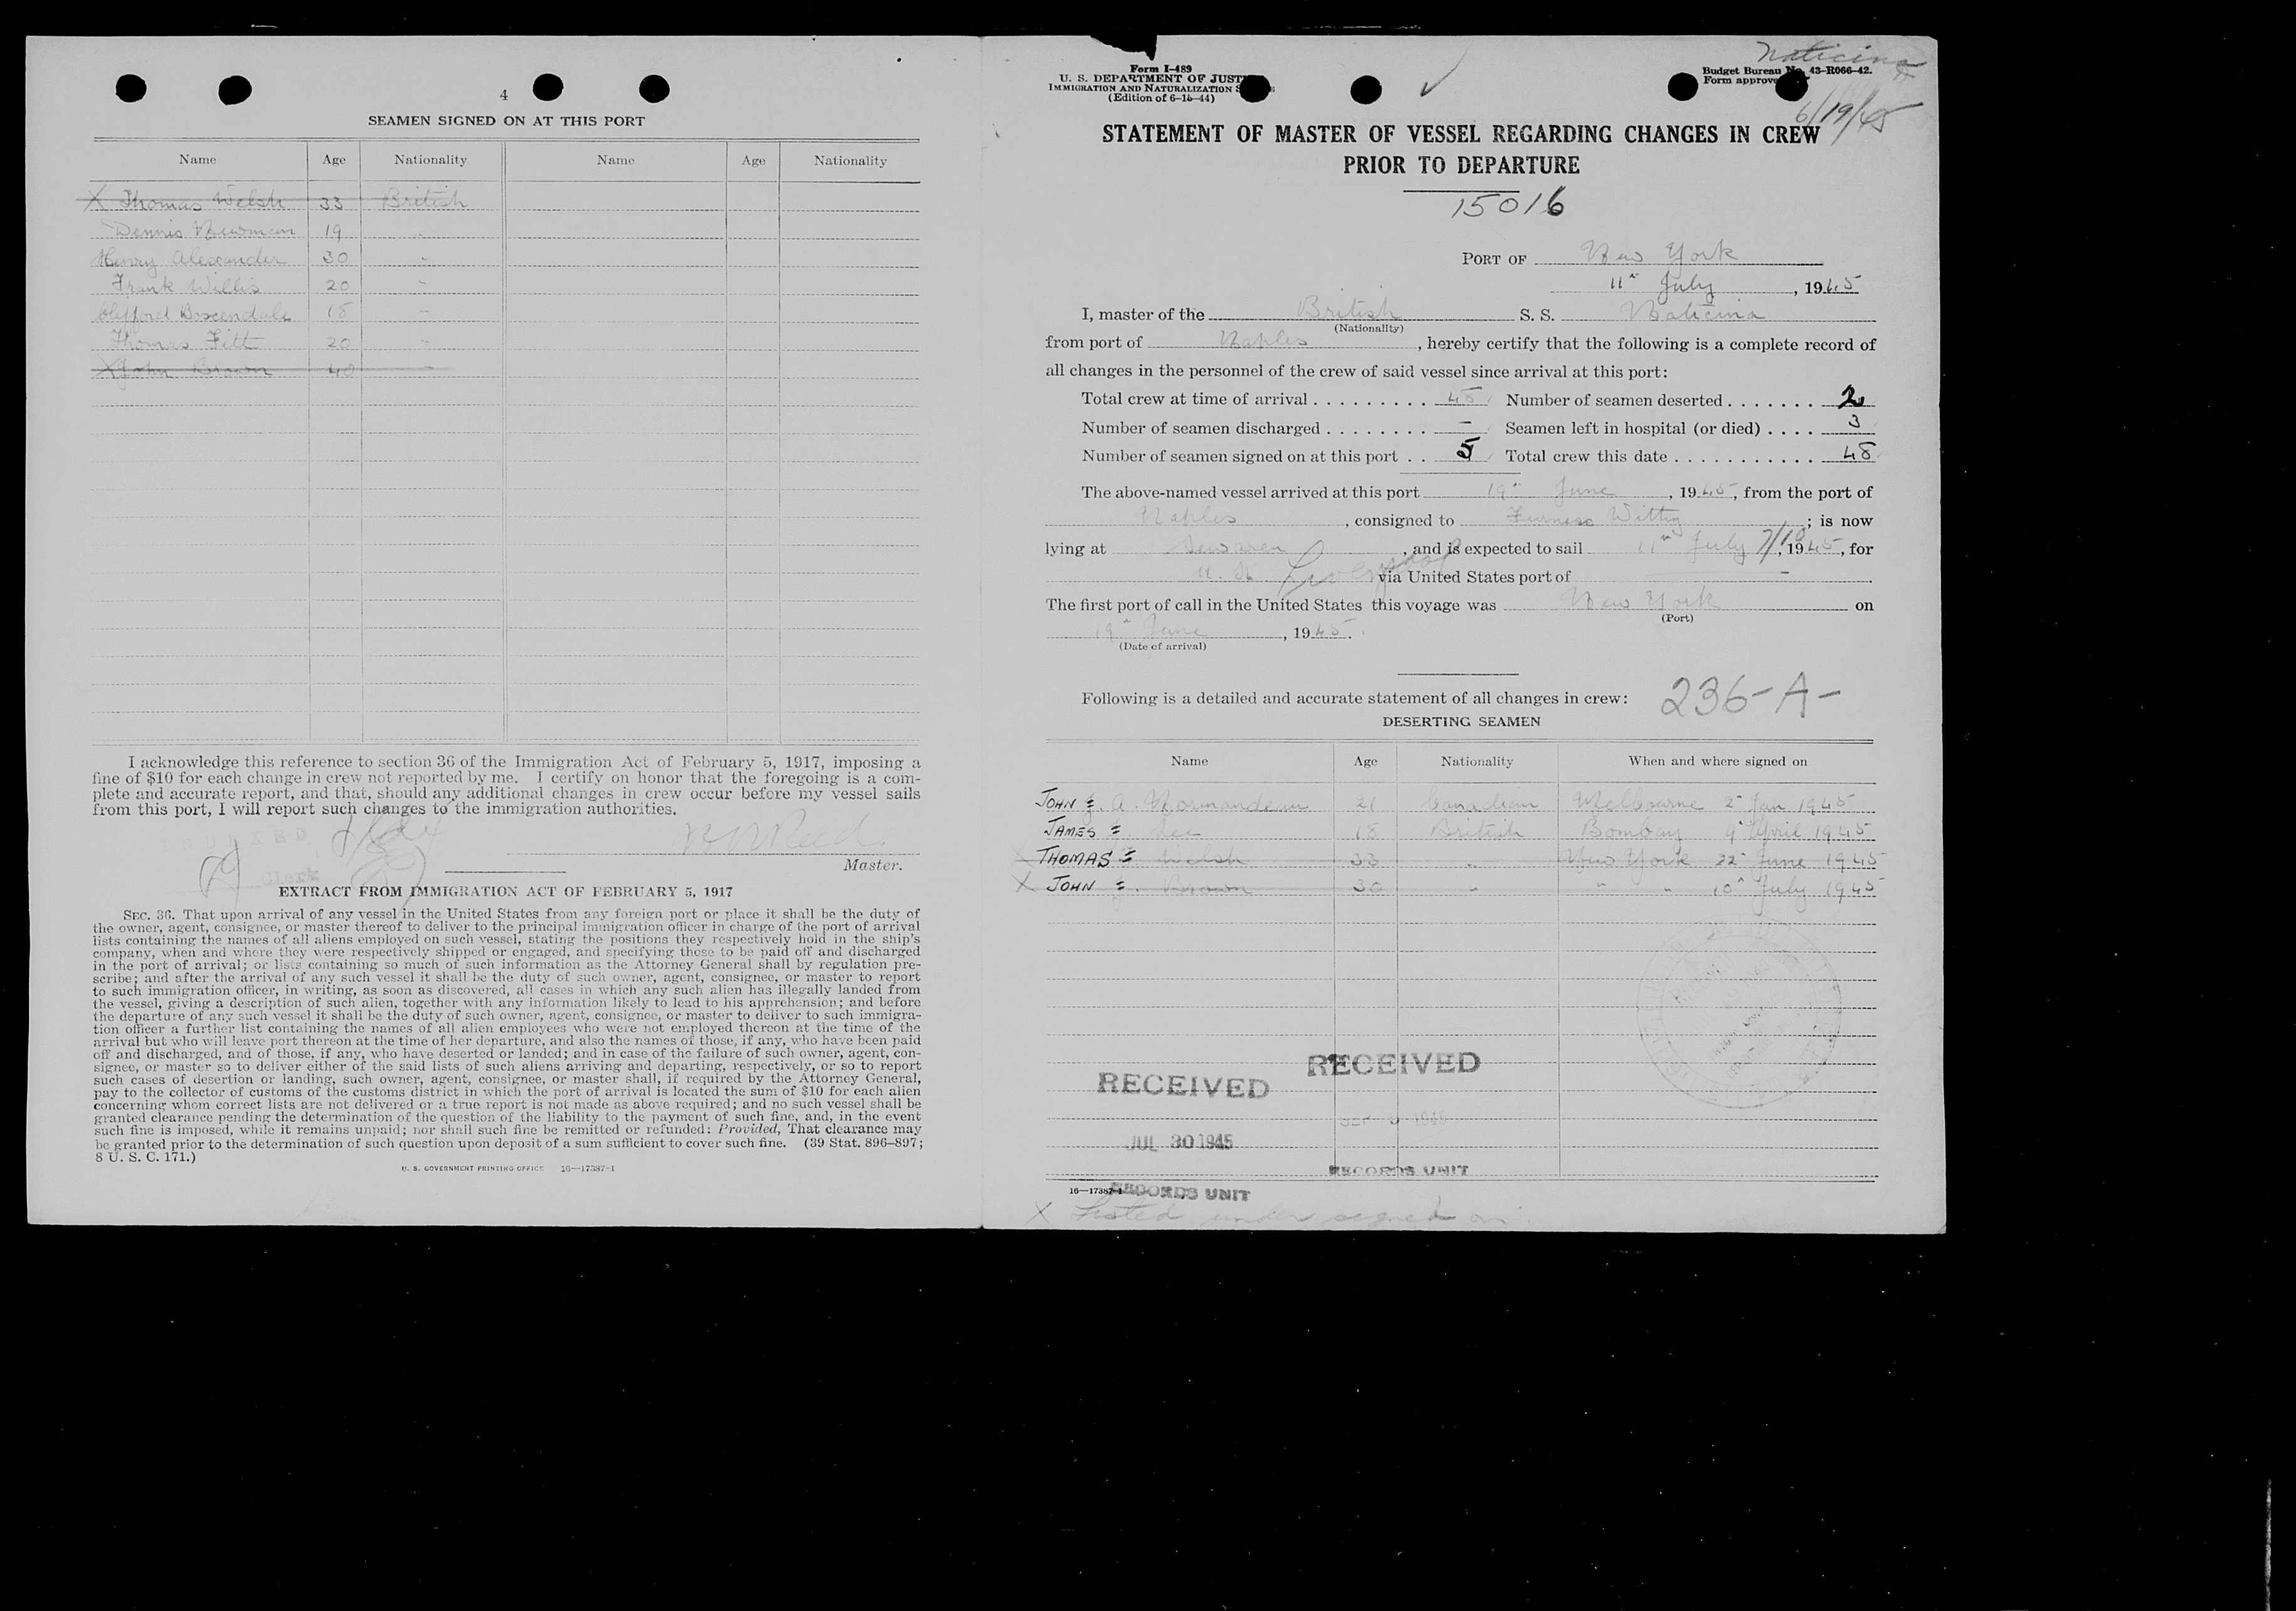 4
SEAMEN SIGNED ON AT THIS PORT
Name Age Nationality Name Age Nationality
X Thomas Welsh 33 British
Dennis Newman 19 "
Henry Alexander 30 "
Frank Willis 20 "
Clifford 18 "
Thomas Fitt 20 "
X John Brown 40 "
I acknowledge this reference to section 36 of the Immigration Act of February 5, 1917, imposing a
fine of $10 for each change in crew not reported by me. I certify on honor that the foregoing is a com-
plete and accurate report, and that, should any additional changes in crew occur before my vessel sails
from this port, I will report such changes to the immigration authorities.
Master.
Clerk
EXTRACT FROM IMMIGRATION ACT OF FEBRUARY 5, 1917
SEC. 36. That upon arrival of any vessel in the United States from any foreign port or place it shall be the duty of
the owner, agent, consignee, or master thereof to deliver to the principal immigration officer in charge of the port of arrival
lists containing the names of all aliens employed on such vessel, stating the positions they respectively hold in the ship's
company, when and where they were respectively shipped or engaged, and specifying those to be paid off and discharged
in the port of arrival; or lists containing so much of such information as the Attorney General shall by regulation pre-
scribe; and after the arrival of any such vessel it shall be the duty of such owner, agent, consignee, or master to report
to such immigration officer, in writing, as soon as discovered, all cases in which any such alien has illegally landed from
the vessel, giving a description of such alien, together with any information likely to lead to his apprehension; and before
the departure of any such vessel it shall be the duty of such owner, agent, consignee, or master to deliver to such immigra-
tion officer a further list containing the names of all alien employees who were not employed thereon at the time of the
arrival but who will leave port thereon at the time of her departure, and also the names of those, if any, who have been paid
off and discharged, and of those, if any, who have deserted or landed; and in case of the failure of such owner, agent, con-
signee, or master so to deliver either of the said lists of such aliens arriving and departing, respectively, or so to report
such cases of desertion or landing, such owner, agent, consignee, or master shall, if required by the Attorney General,
pay to the collector of customs of the customs district in which the port of arrival is located the sum of $10 for each alien
concerning whom correct lists are not delivered or a true report is not made as above required; and no such vessel shall be
granted clearance pending the determination of the question of the liability to the payment of such fine, and, in the event
such fine is imposed, while it remains unpaid; nor shall such fine be remitted or refunded: Provided, That clearance may
be granted prior to the determination of such question upon deposit of a sum sufficient to cover such fine. (39 Stat. 896–897;
8 U. S. C. 171.)
U. S. GOVERNMENT PRINTING OFFICE 16—17387-1
Naticina
6/19/45
Form I-489
U. S. DEPARTMENT OF JUST
IMMIGRATION AND NATURALIZATION S
(Edition of 6-15-44)
Budget Bureau No. 43-R066-42.
Form approve
STATEMENT OF MASTER OF VESSEL REGARDING CHANGES IN CREW
PRIOR TO DEPARTURE
15016
PORT OF New York
11" July, 1945
I, master of the British S. S. Naticina
(Nationality)
from port of Naples, hereby certify that the following is a complete record of
all changes in the personnel of the crew of said vessel since arrival at this port:
Total crew at time of arrival 48 Number of seamen deserted 2
Number of seamen discharged - Seamen left in hospital (or died) 3
Number of seamen signed on at this port 5 Total crew this date 48
The above-named vessel arrived at this port 19" June, 1945, from the port of
Naples, consigned to Furness Withy; is now
lying at Sewaren, and is expected to sail 11" July 7/10, 1945, for
U. K. Liverpool via United States port of -
The first port of call in the United States this voyage was New York on
(Port)
19" June, 1945.
(Date of arrival)
Following is a detailed and accurate statement of all changes in crew: 236-A-
DESERTING SEAMEN
Name Age Nationality When and where signed on
JOHN J. A. Normandeau 21 Canadian Melbourne 2" Jan 1945
JAMES Lee 18 British Bombay 9" April 1945
X THOMAS Welsh 33 " New York 22" June 1945
X JOHN Brown 30 " " " 10" July 1945
RECEIVED
RECEIVED
JUL 30 1945
RECORDS UNIT
16—17387-1 RECORDS UNIT
X Listed under signed on